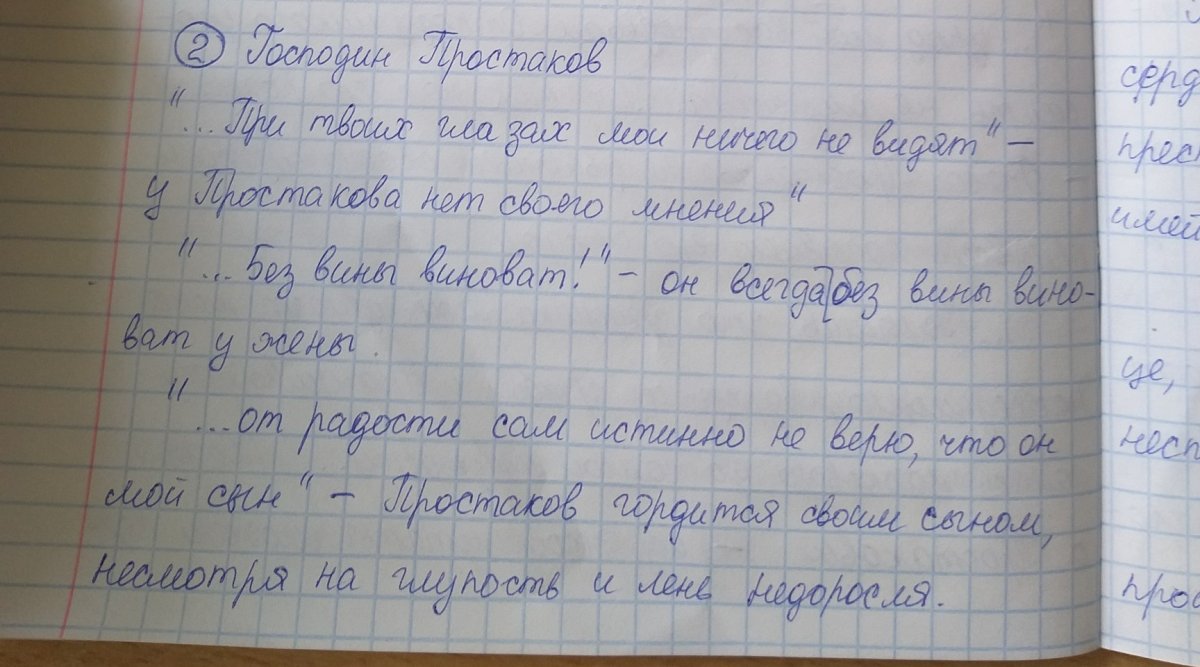 ② Господин Простаков
"...При твоих глазах мои ничего не видят" –
у Простакова нет своего мнения"
"...Без вины виноват!" – он всегда без вины вино-
ват у жены.
"...от радости сам истинно не верю, что он
мой сын" – Простаков гордится своим сыном,
несмотря на глупость и лень недоросля.
серд
прес
имей
це,
несп
прос